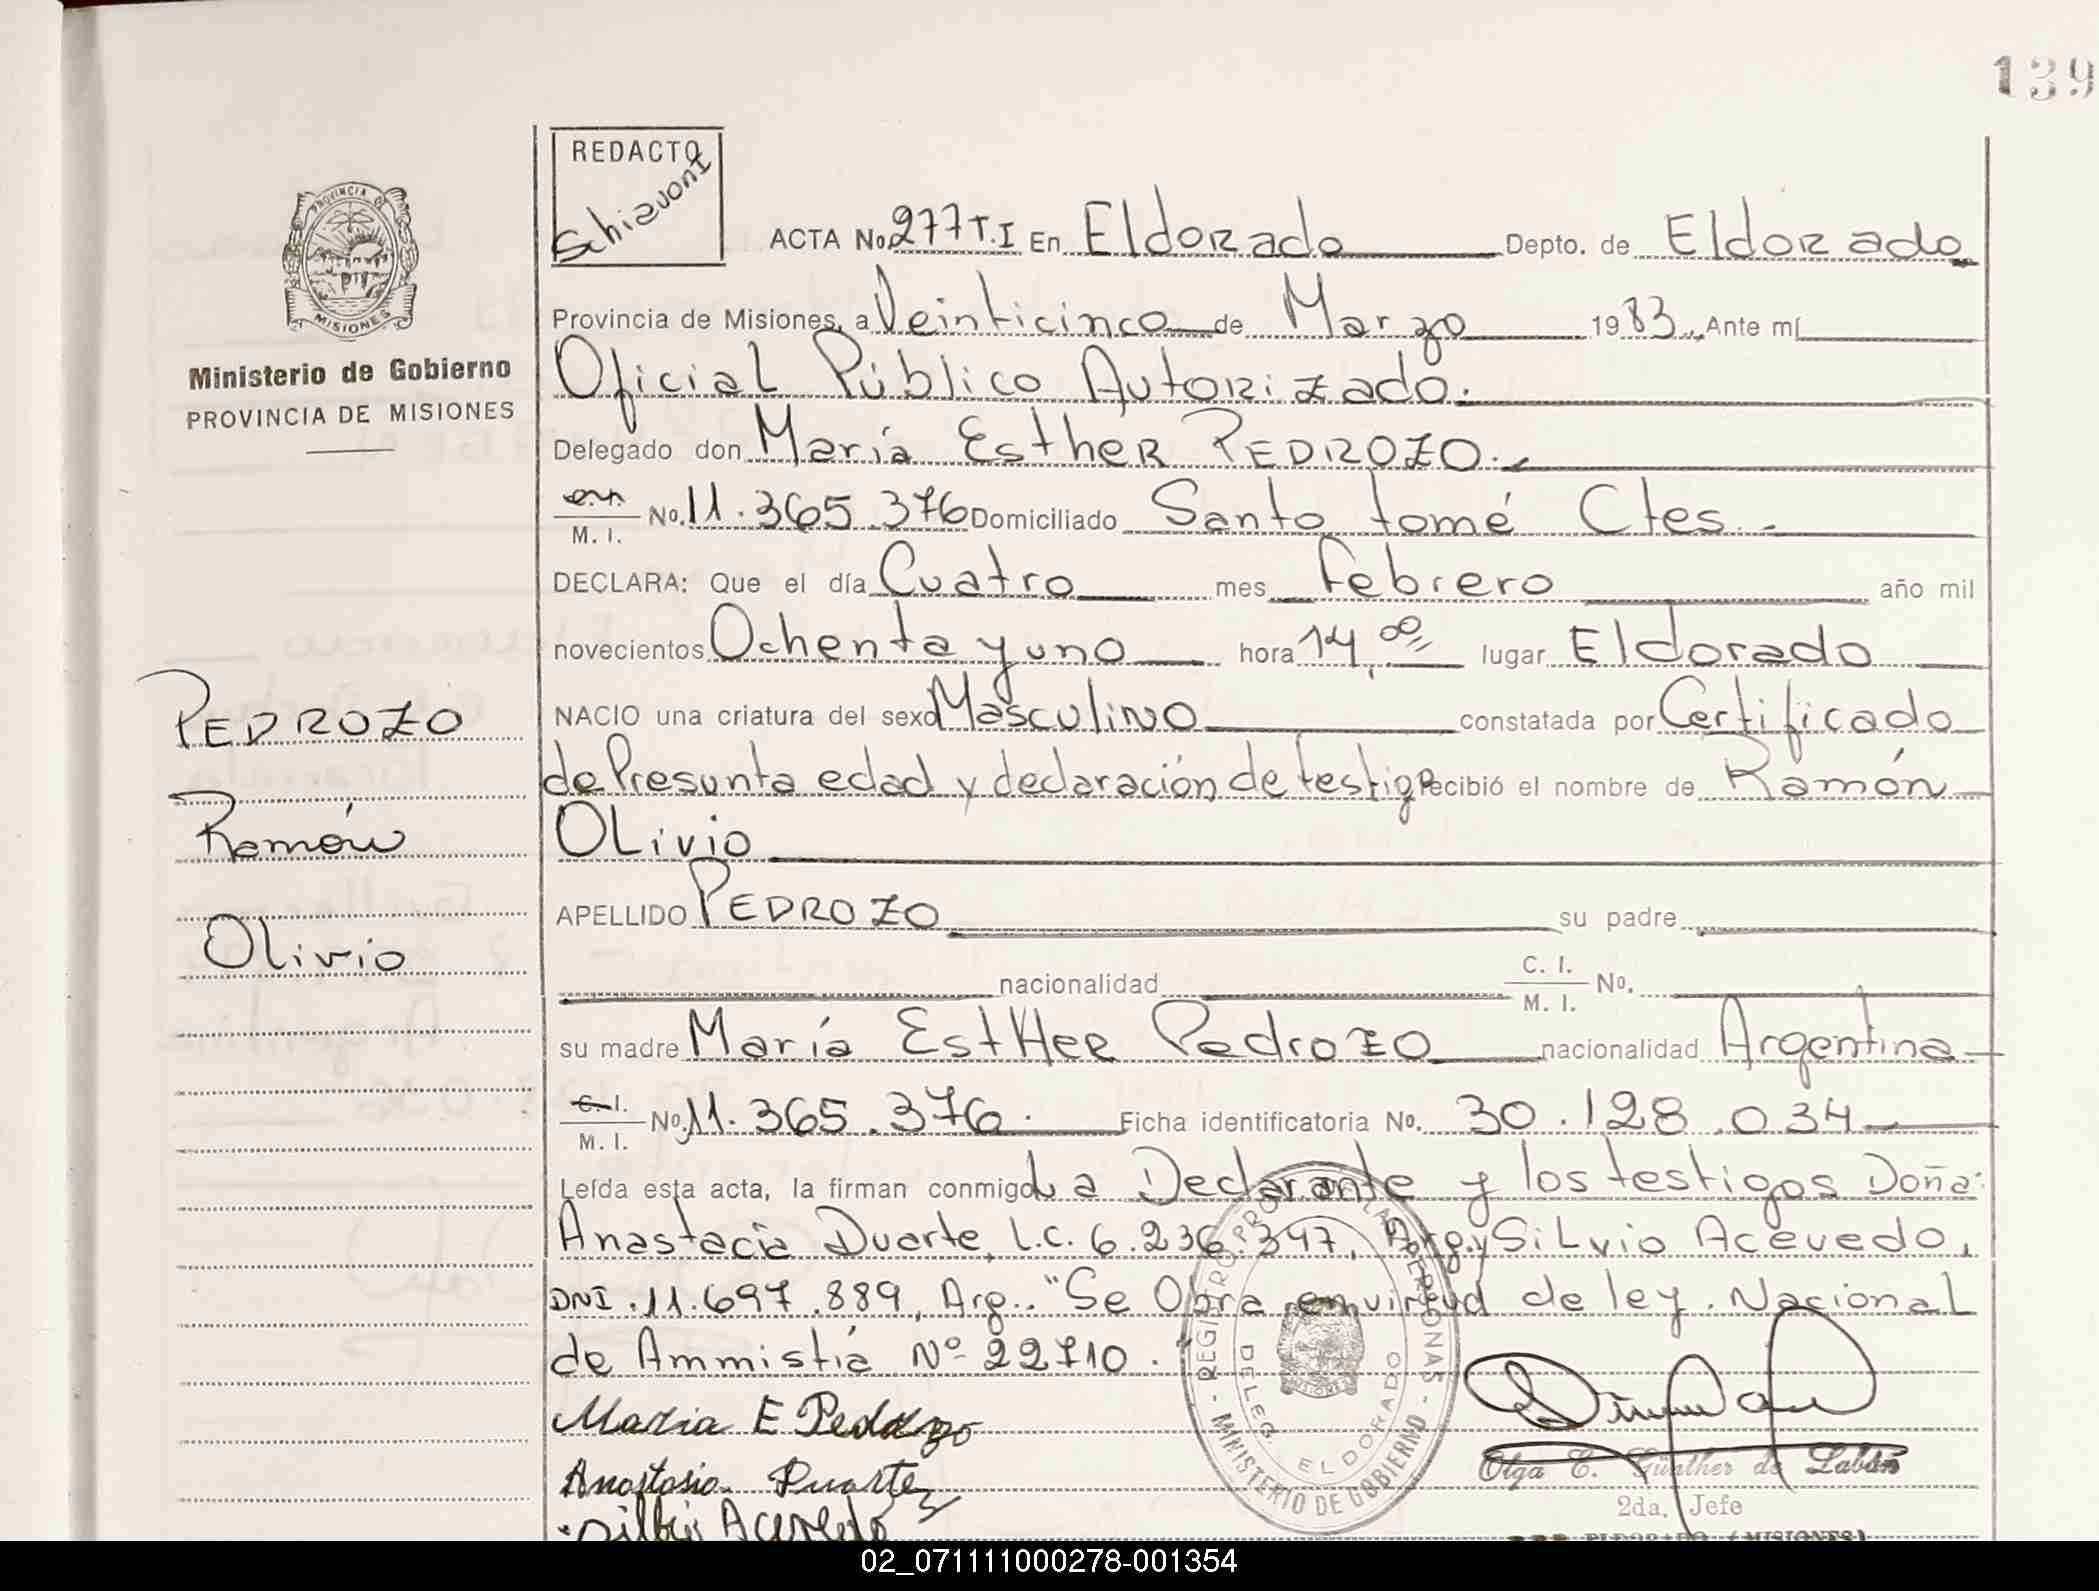 139
REDACTO
Schiavoni
PROVINCIA DE
MISIONES
Ministerio de Gobierno
PROVINCIA DE MISIONES
ACTA No. 277 T.I En Eldorado Depto. de Eldorado
Provincia de Misiones, a Veinticinco de Marzo 1983., Ante mí
Oficial Público Autorizado.
Delegado don María Esther PEDROZO.
M. I. No. 11.365.376 Domiciliado Santo tomé Ctes.
DECLARA: Que el día Cuatro mes Febrero año mil
novecientos Ochenta y uno hora 14,00 lugar Eldorado
NACIO una criatura del sexo Masculino constatada por Certificado
de Presunta edad y declaración de testigo recibió el nombre de Ramón
OLivio
APELLIDO PEDROZO su padre
nacionalidad C. I. M. I. No.
su madre María Esther Pedrozo nacionalidad Argentina
C. I. M. I. No. 11.365.376. Ficha identificatoria No. 30.128.034
Leída esta acta, la firman conmigo La Declarante y los testigos Doña:
Anastacia Duarte, L.C. 6.236.347, Arg. y SiLvio Acevedo,
DNI.11.697.889, Arg.. "Se Obra en virtud de ley. Nacional
de Ammistía Nº 22710."
PEDROZO
Ramón
Olivio
Maria E Pedrozo
Anastasia Duarte
Silbio Acevedo
REGISTRO PROV. DE LAS PERSONAS
DELEG. ELDORADO
MINISTERIO DE GOBIERNO
MISIONES
Olga E. Günther de Labán
2da. Jefe
ELDORADO (MISIONES)
02_071111000278-001354